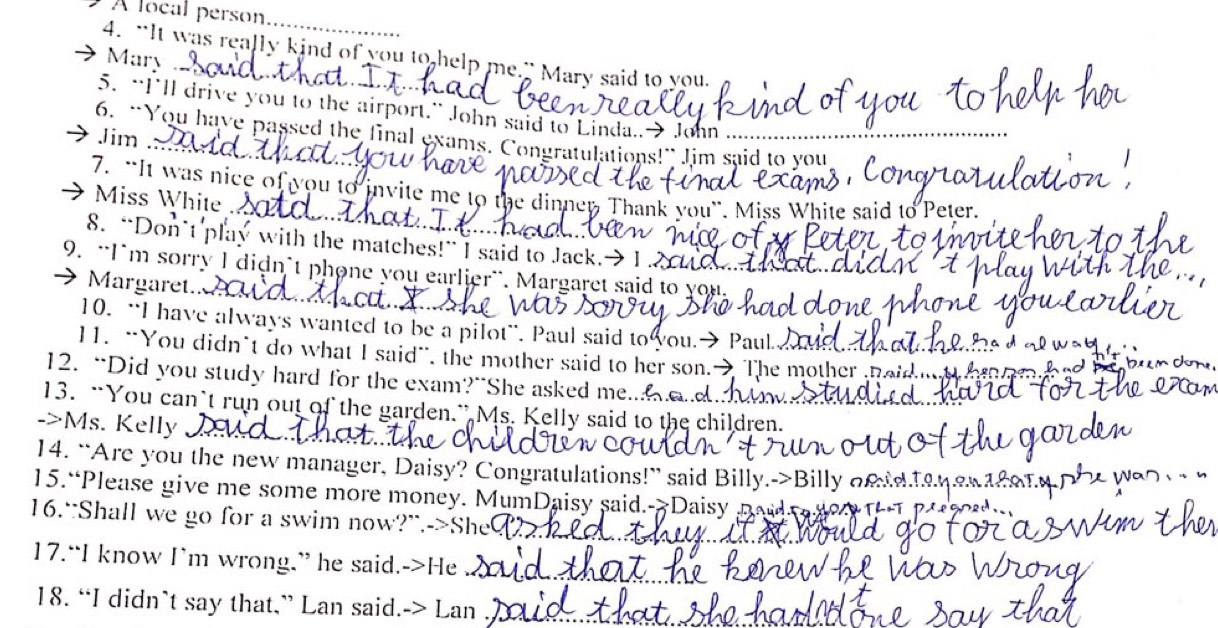 → A local person....................
4. “It was really kind of you to help me.” Mary said to you.
→ Mary said that It had been really kind of you to help her
5. “I’ll drive you to the airport.” John said to Linda..→ John ........................................
6. “You have passed the final exams. Congratulations!” Jim said to you
→ Jim said that you have passed the final exams, Congratulation!
7. “It was nice of you to invite me to the dinner. Thank you”. Miss White said to Peter.
→ Miss White said that It had been nice of Peter to invite her to the
8. “Don’t play with the matches!” I said to Jack.→ I said that didn't play with the...
9. “I’m sorry I didn’t phone you earlier”. Margaret said to you.
→ Margaret said that she was sorry she had done phone you earlier
10. “I have always wanted to be a pilot”. Paul said to you.→ Paul said that he had always...
11. “You didn’t do what I said”. the mother said to her son.→ The mother said her son had been done.
12. “Did you study hard for the exam?”She asked me had him studied hard for the exam
13. “You can’t run out of the garden.” Ms. Kelly said to the children.
->Ms. Kelly said that the children couldn't run out of the garden
14. “Are you the new manager, Daisy? Congratulations!” said Billy.->Billy said to you that she was...
15.“Please give me some more money. MumDaisy said.->Daisy said
16.“Shall we go for a swim now?”.->She asked they if would go for a swim then
17.“I know I’m wrong.” he said.->He said that he knew he was wrong
18. “I didn’t say that,” Lan said.-> Lan said that she hadn't done say that